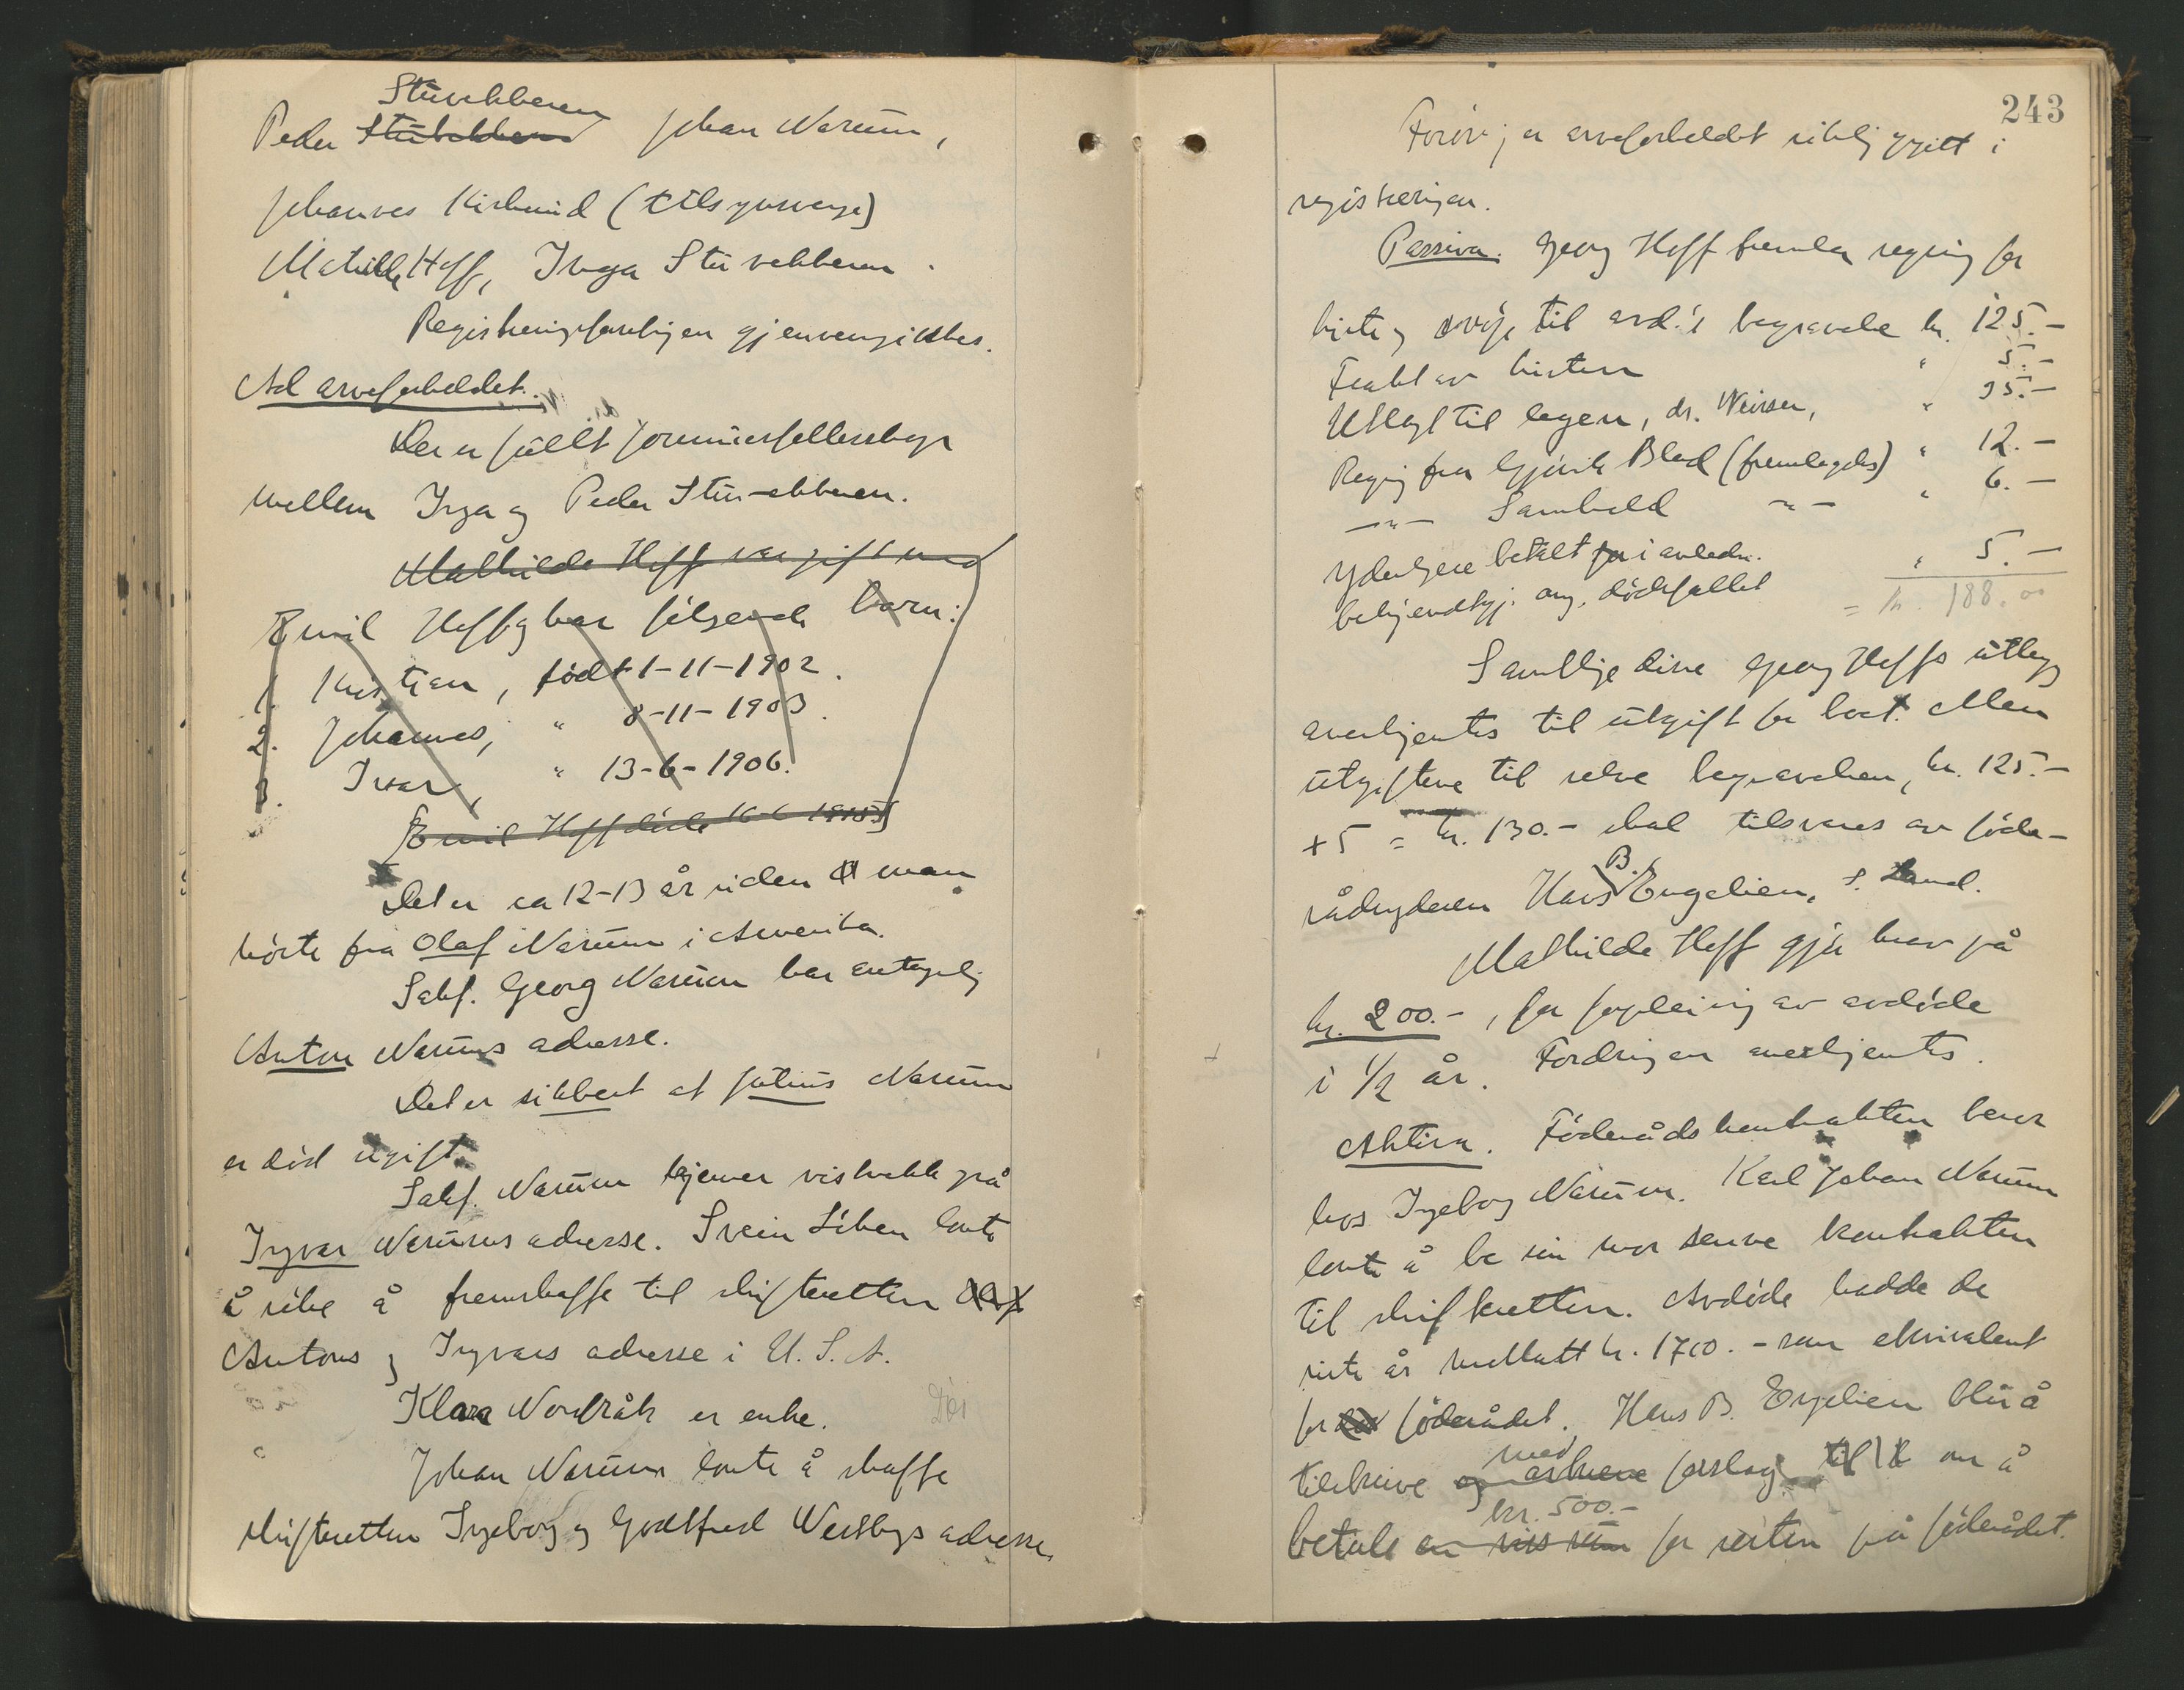 Stuvekkeren
Peder Stubekkeren Johan Narum,
Johannes Kirkerud (tilsynsverge)
Mathilde Hoff, Inga Stuvekkeren.
Registreringsforretningen gjennemgikkes.
Ad arveforholdet.
Der er fullt formuesfellesskap
mellem Inga og Peder Stuvekkeren.
Mathilde Hoff var gift med
Emil Hoff og har følgende barn:
1. Kristian, født 1-11-1902.
2. Johannes, " 8-11-1903.
3. Ivar, " 13-6-1906.
Emil Hoff døde 16-6 1915
Det er ca 12-13 år siden man
hørte fra Olaf Narum i Amerika.
Sakf. Georg Narum har antagelig
Anton Narums adresse.
Det er sikkert at Julius Narum
er død ugift.
Sakf. Narum kjenner visstnokk på
Ingvar Narums adresse. Svein Liben lovte
å søke å fremskaffe til skifteretten Olaf
Antons og Ingvars adresse i U.S.A.
Klara Nordråk er enke.
Johan Narum lovte å skaffe
skifteretten Ingeborg og Godtfred Westbys adresse.
243
Forøvrig er arveforholdet riktig opgitt i
registreringen.
Passiva. Georg Hoff fremla regning for
kiste og øvrige til avd.'s begravelse kr. 125.-
Frakt av kisten " 5.-
Utlagt til legen, dr. Neirsen, " 35.-
Regning fra Gjøvik Blad (fremlagdes) " 12.-
-"- Samhold -"- " 6.-
Yderligere betalt for i anledn.
bekjendtgj. ang. dødsfallet " 5.-
= kr 188.00
Samtlige disse Georg Hoffs utlegg
anerkjentes til utgift for boet. Men
utgiftene til selve begravelsen, kr. 125.-
+5 = kr. 130.- skal tilsvares av føde-
rådsyderen Hans B. Engelien, S. Land.
Mathilde Hoff gjør krav på
kr. 200.-, for forpleining av avdøde
i 1/2 år. Fordringen anerkjentes.
Aktiva. Føderådskontrakten beror
hos Ingeborg Narum. Karl Johan Narum
lovte å be sin mor sende kontrakten
til skifteretten. Avdøde hadde de
siste år mottatt kr. 1700.- som ekvivalent
for føderådet. Hans B. Engelien blir å
med
tilskrive og avkreve forslag til om å
kr. 500.-
betale en viss sum for resten på føderådet.